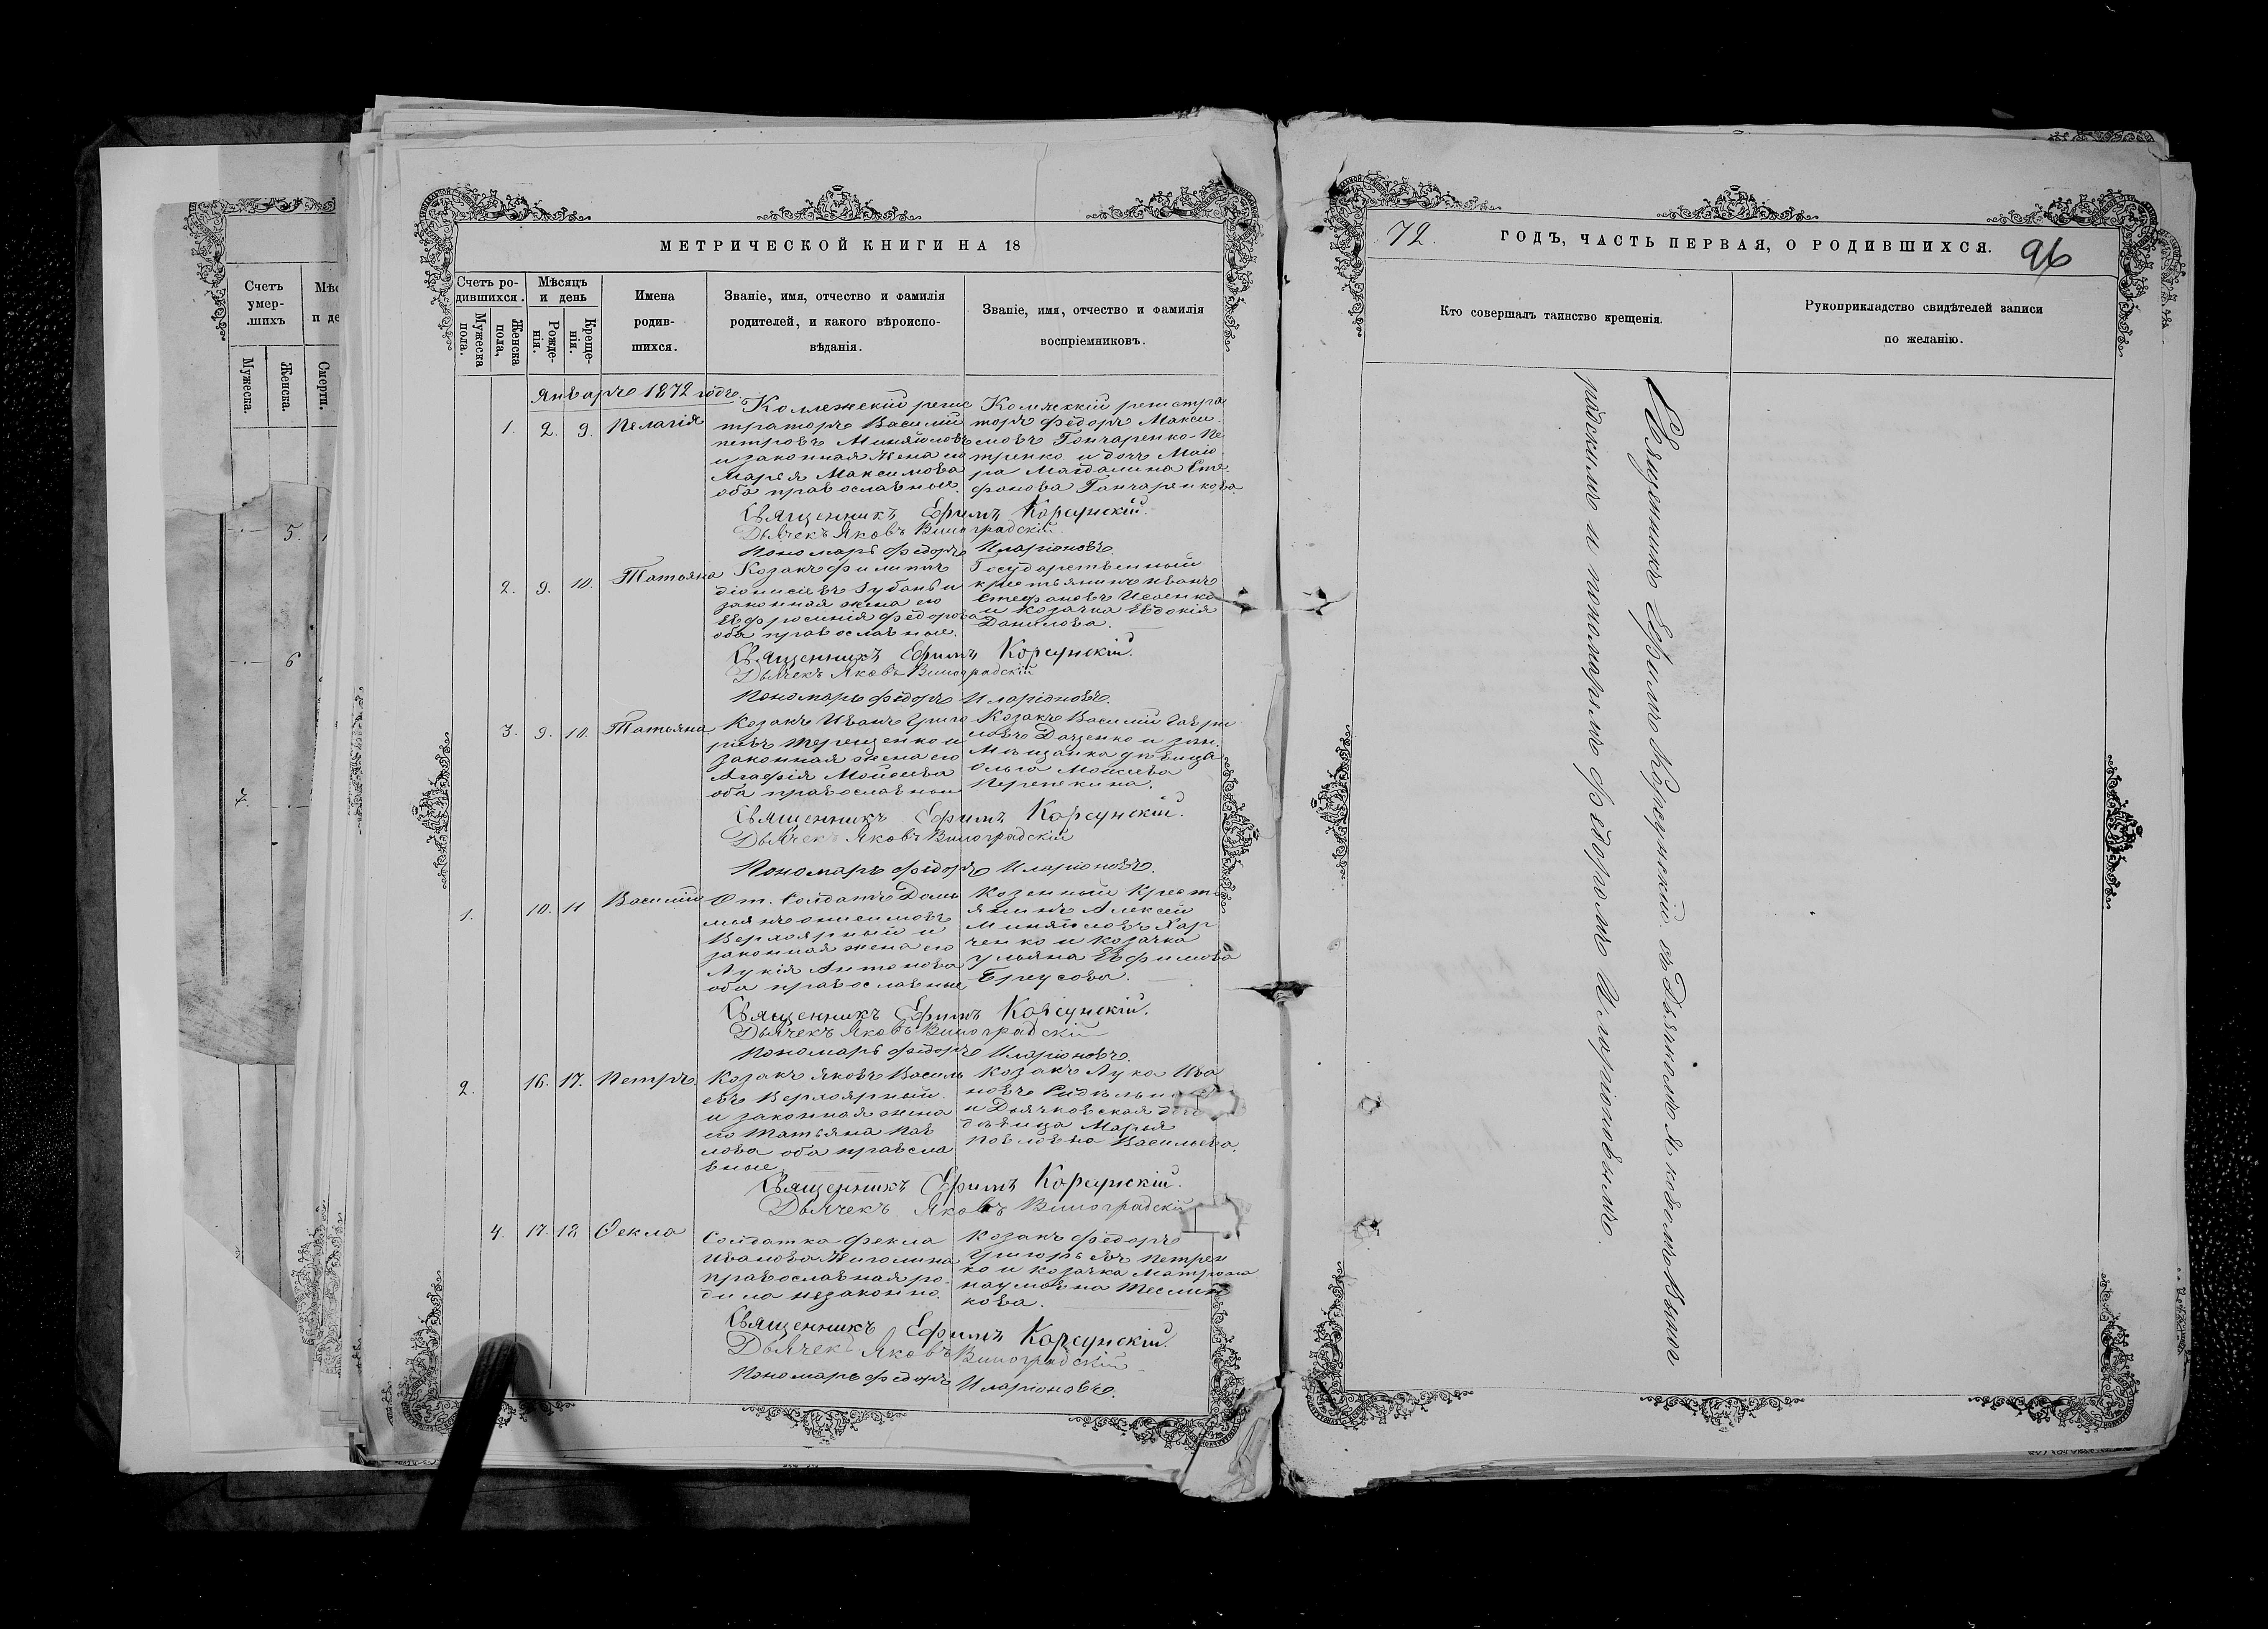 Счетъ
умер-
шихъ
Мужеска.
Женска.
Смерти.
5.
6
7.
МЕТРИЧЕСКОЙ КНИГИ НА 18
Счетъ ро-
дившихся.
Мужеска
пола.
Женска
пола,
Мѣсяцъ
и день
Рожде-
нія.
Креще-
нія.
Имена
родив-
шихся.
Званіе, имя, отчество и фамилія
родителей, и какого вѣроиспо-
вѣданія.
Званіе, имя, отчество и фамилія
воспріемниковъ.
Январь 1872 годъ.
1. 2. 9. Пелагія
Коллежскій регис
траторъ Василий
Петровъ
и законная жена его
Марья Максимова
оба православные.
Коллежкій регистра
торъ Федоръ Макси
мовъ Гончаренко-Пе
тренко и дочь Маіо
ра Магдалина Сте
фанова Гончаренкова
Священникъ Ефимъ Корсунскій.
Дьячекъ Яковъ Виноградскій
Пономарь Федоръ Иларіоновъ.
2. 9. 10. Татьяна
Козакъ Филипъ
Діонисіевъ Губань и
законная жена его
Евфросинія Федорова
оба православные.
Государственный
крестьянинъ Иванъ
Стефановъ Исаенко
и козачка Евдокія
Данилова.
Священникъ Ефимъ Корсунскій.
Дьячекъ Яковъ Виноградскій
Пономарь Федоръ Иларіоновъ.
3. 9. 10. Татьяна
Козакъ Иванъ Григо
ріевъ Терещенко и
законная жена его
Агафія Мойсеева
оба православныи
Козакъ Василий Гаври
ловъ Даценко и
Мѣщанка дѣвица
Ольга Моисеева
Перепекина.
Священникъ Ефимъ Корсунскій.
Дьячекъ Яковъ Виноградскій
Пономарь Федоръ Иларіоновъ.
1. 10. 11 Василий
От. Солдатъ Доми
мьянъ Онисимовъ
Верлоярный и
законная жена его
Лукія Антонова
оба православные
Козенный крест
янинъ Алексей
Миняйловъ Хар
ченко и козачка
Ульяна Евфимова
Бреусова.
Священникъ Ефимъ Корсунскій.
Дьячекъ Яковъ Виноградскій
Пономарь Федоръ Иларіоновъ.
2. 16. 17. Петръ
Козакъ Яковъ Василь
евъ Верлоярный
и законная жена
его Татьяна Пав
лова оба правосла
вные
Козакъ Лука Ива
новъ
и Дьячковская
дѣвица Марья
Павловна Васильева.
Священникъ Ефимъ Корсунскій.
Дьячекъ Яковъ Виноградскій
4. 17. 18 Ѳекла
Солдатка Фекла
Иванова
православная ро-
дила незаконно.
Козакъ Федоръ
Григорьевъ Петрен
ко и козачка Матрона
Наумовна Теслин
кова.
Священникъ Ефимъ Корсунскій.
Дьячекъ Яковъ Виноградскій
Пономарь Федоръ Иларіоновъ.
72. ГОДЪ, ЧАСТЬ ПЕРВАЯ, О РОДИВШИХСЯ. 96
Кто совершалъ таинство крещенія.
Рукоприкладство свидѣтелей записи
по желанію.
Священникъ Ефимъ Корсунскій съ Дьячкомъ Яковомъ Виног
радскимъ и пономаремъ Федоромъ Иларіоновымъ.